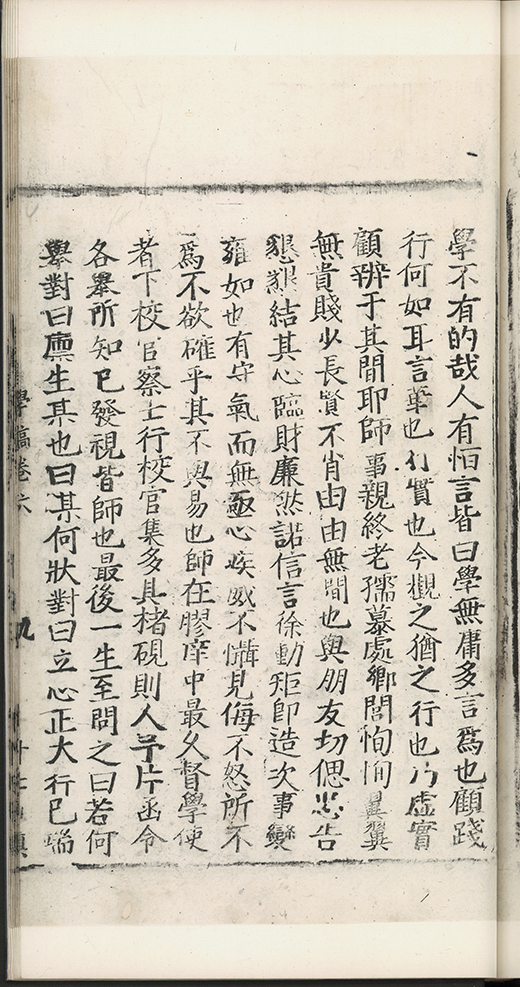 學不有的哉人有恒言皆曰學無庸多言爲也顧踐
行何如耳言華也行實也今觀之猶之行也乃虛實
顧辨于其間耶師事親終老孺慕處鄉閭恂恂翼翼
無貴賤少長賢不肖由由無間也與朋友切偲忠告
懇懇結其心臨財廉然諾信言徐動矩即造次事變
雍如也有守氣而無亟心疾烕不懾見侮不怒所不
爲不欲確乎其不與易也師在膠庠中最久督學使
者下校官察士行校官集多具楮硯則人予片函令
各舉所知已發視皆師也最後一生至問之曰若何
舉對曰廪生某也曰某何狀對曰立心正大行已端
學稿卷六 九